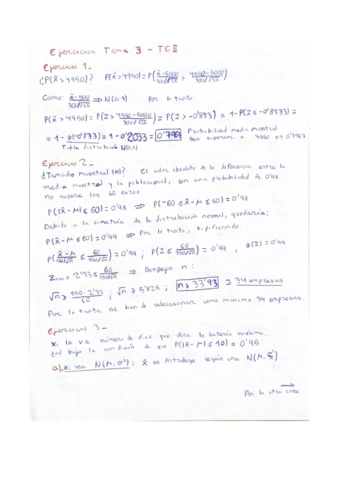 Ejercicios Tema 3 - TC II
Ejercicio 1_
¿P(x̄ > 4950)? P(x̄ > 4950) = P( (x̄-5000)/(300/√25) > (4950-5000)/(300/√25) )
Como: (x̄-5000)/(300/√25) ⇒ N(0,1) Por lo tanto:
P(x̄ > 4950) = P(Z > (4950-5000)/(300/√25)) = P(Z > -0'8333) = 1 - P(Z ≤ -0'8333) =
= 1 - φ(-0'833) = 1 - 0'2033 = 0'7967 Probabilidad media muestral
Tabla distribución N(0,1) sea superior a 4950 es 0'7967
Ejercicio 2_
¿Tamaño muestral (n)? El valor absoluto de la diferencia entre la
media muestral y la poblacional, con una probabilidad de 0'98
no supere los 60 euros
P(|x̄-μ| ≤ 60) = 0'98 ⇒ P(-60 ≤ x̄-μ ≤ 60) = 0'98
Debido a la simetría de la distribución normal, quedaría:
P(x̄-μ ≤ 60) = 0'99 ⇒ Por lo tanto, tipificando
P( (x̄-μ)/(150/√n) ≤ 60/(150/√n) ) = 0'99 ; P(Z ≤ 60/(150/√n)) = 0'99 , φ(Z) = 0'99
= 2'33 ≤ 60/(150/√n) ⇒ Despejo n:
√n ≥ (150·2'33)/60 ; √n ≥ 5'825 ; n ≥ 33'93 ≅ 34 empresas
Por lo tanto se han de seleccionar como mínimo 34 empresas.
Ejercicio 3_
X: la v.a. número de días que dora la batería
bajo la condición de que P(|x̄-μ| ≤ 10) = 0'95
a) X v.a. N(μ, σ²); x̄ se distribuye según una N(μ,
Por la otra cara